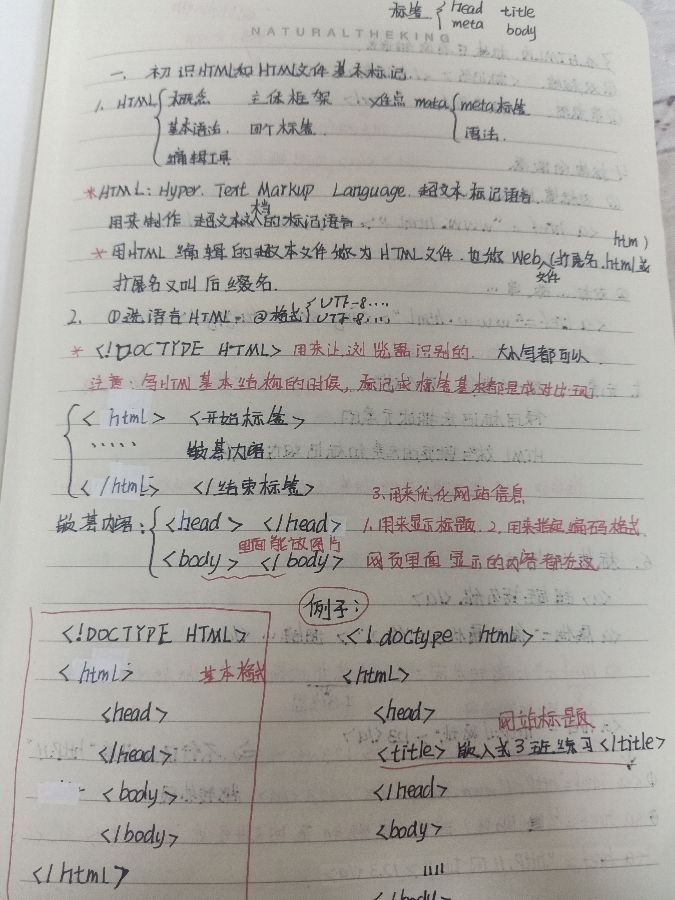 标签 { head title
meta body
NATURALTHEKING
一、初识HTML和HTML文件基本标记.
1. HTML { 概念 主体框架 难点 mata { meta标签
基本语法. 四个标签. 语法.
编辑工具
*HTML: Hyper. Text Markup Language. 超文本标记语言
用来制作 超文本文档的标记语言.
* 用HTML 编辑的超文本文件称为HTML文件. 也称Web文件(扩展名.html或htm)
扩展名又叫后缀名.
2. ①选语言HTML. ②格式 { UTF-8....
UTF-8....
* <!DOCTYPE HTML> 用来让浏览器识别的. 大小写都可以.
注意: 写HTMl基本结构的时候, 标记或标签基本都是成对出现
{ < html> <开始标签>
..... 嵌基内容
< /html> </结束标签> 3.用来优化网站信息
嵌基内容: { <head> </head> 1.用来显示标题. 2.用来指定编码格式.
里面能放图片
<body> </body> 网页里面显示的内容都放这
例子:
<!DOCTYPE HTML> <!doctype html>
< html> 基本格式 <html>
<head> <head>
网站标题
</head> <title> 嵌入式3班练习</title>
<body> </head>
</body> <body>
</html>
</body>